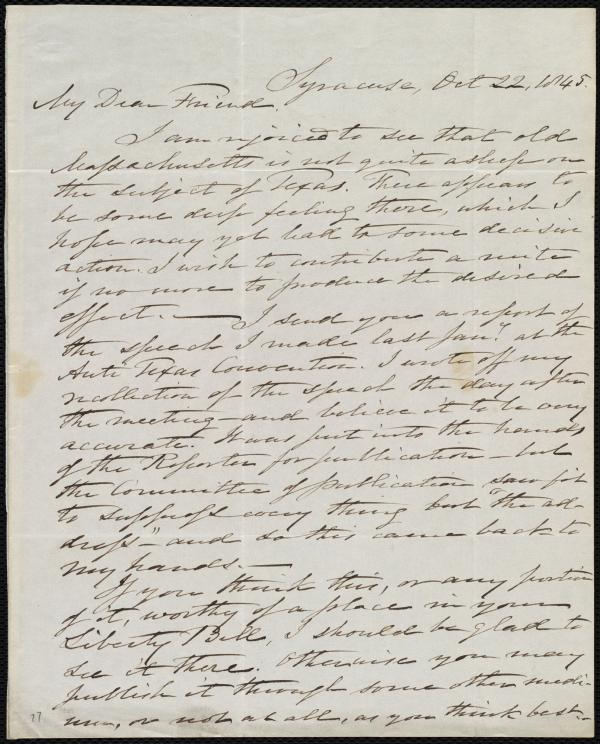 Syracuse, Oct 22, 1845.
My Dear Friend,
I am rejoiced to see that old
Massachusetts is not quite asleep on
the subject of Texas. There appears to
be some deep feeling there, which I
hope may yet lead to some decisive
action. I wish to contribute a mite
if no more to produce the desired
effect. — I send you a report of
the speech I made last Jany. at the
Anti Texas Convention. I wrote off my
recollection of the speech the day after
the meeting — and believe it to be very
accurate. It was put into the hands
of the Reporter for publication — but
the Committee of publication saw fit
to suppress every thing but "the ad-
dress" — and so this came back to
my hands. —
If you think this, or any portion
of it, worthy of a place in your
Liberty Bell, I should be glad to
see it there. Otherwise you may
publish it through some other medi-
um, or not at all, as you think best. —
77